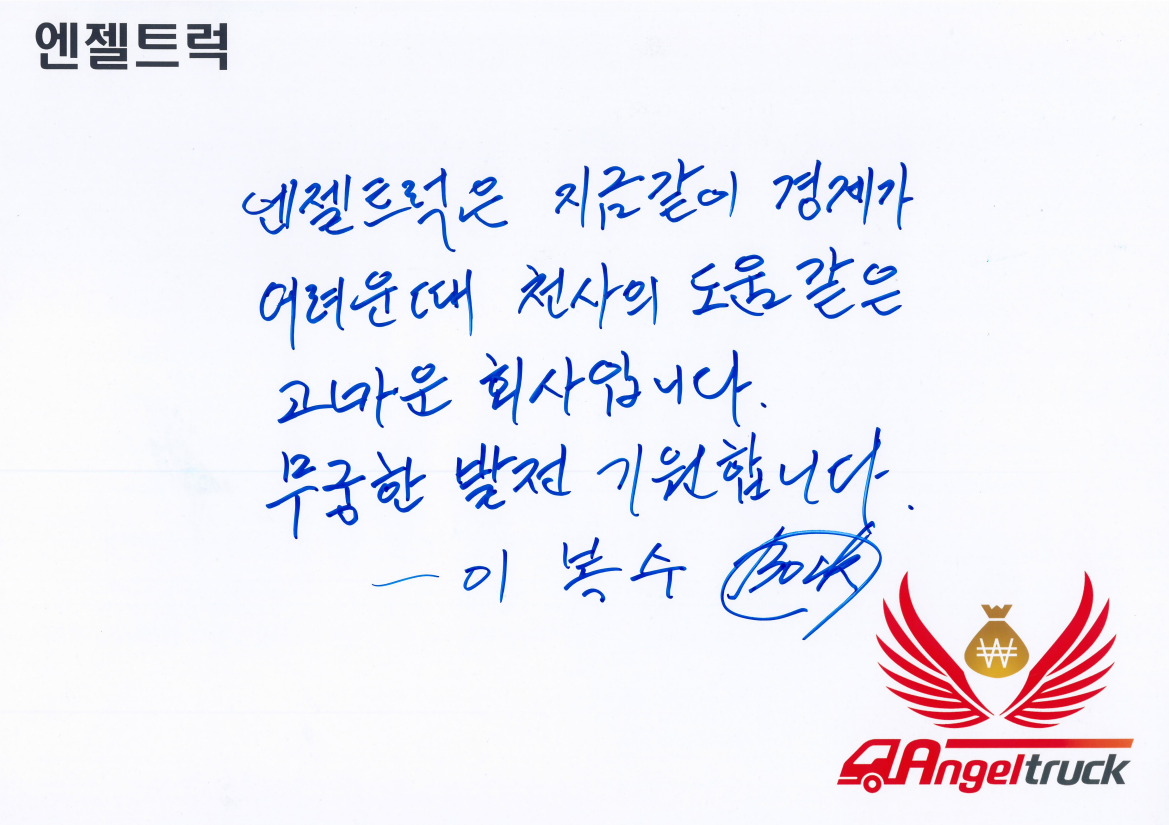 엔젤트럭
엔젤트럭은 지금같이 경제가
어려운때 천사의 도움 같은
고마운 회사입니다.
무궁한 발전 기원합니다.
― 이 복 수
₩
Angeltruck